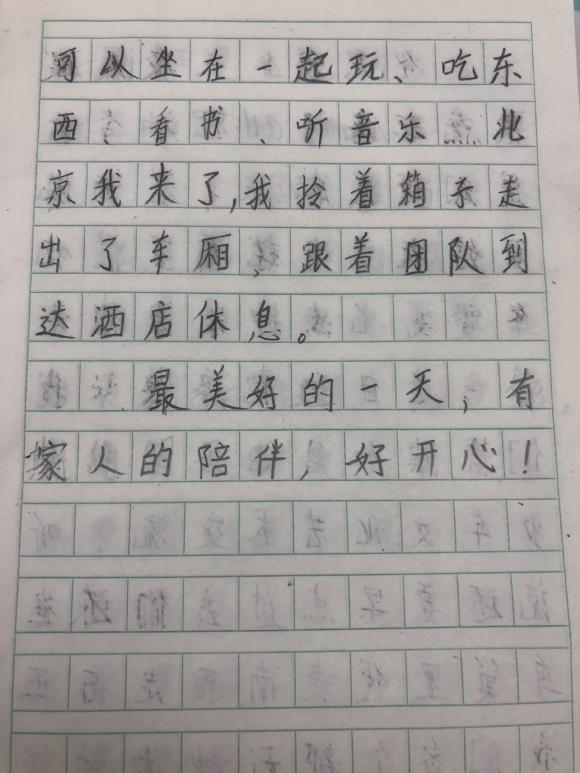 可以坐在一起玩、吃东
西、看书、听音乐……北
京我来了,我拎着箱子走
出了车厢,跟着团队到
达洒店休息。
最美好的一天,有
家人的陪伴,好开心!